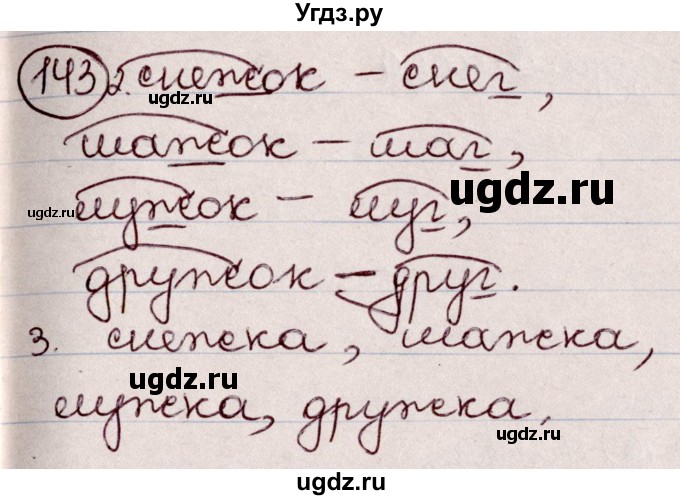 Угдз.ру
143 2. снежок – снег,
ugdz.ru
ugdz.ru
шажок – шаг,
ugdz.ru
лужок – луг,
ugdz.ru
дружок – друг.
3. снежка, шажка,
ugdz.ru
лужка, дружка.
ugdz.ru
ugdz.ru